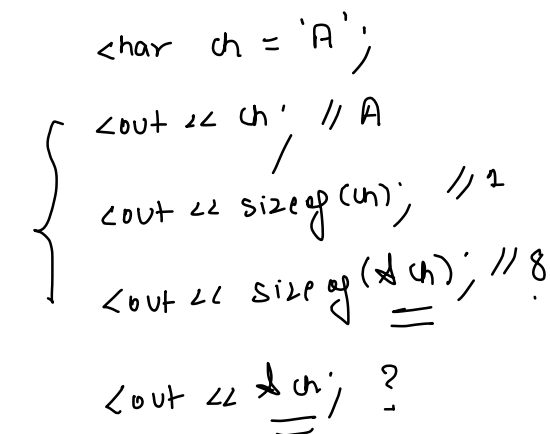 char ch = 'A';
cout << ch; // A
cout << sizeof(ch); // 1
cout << sizeof(&ch); // 8
cout << &ch; ?